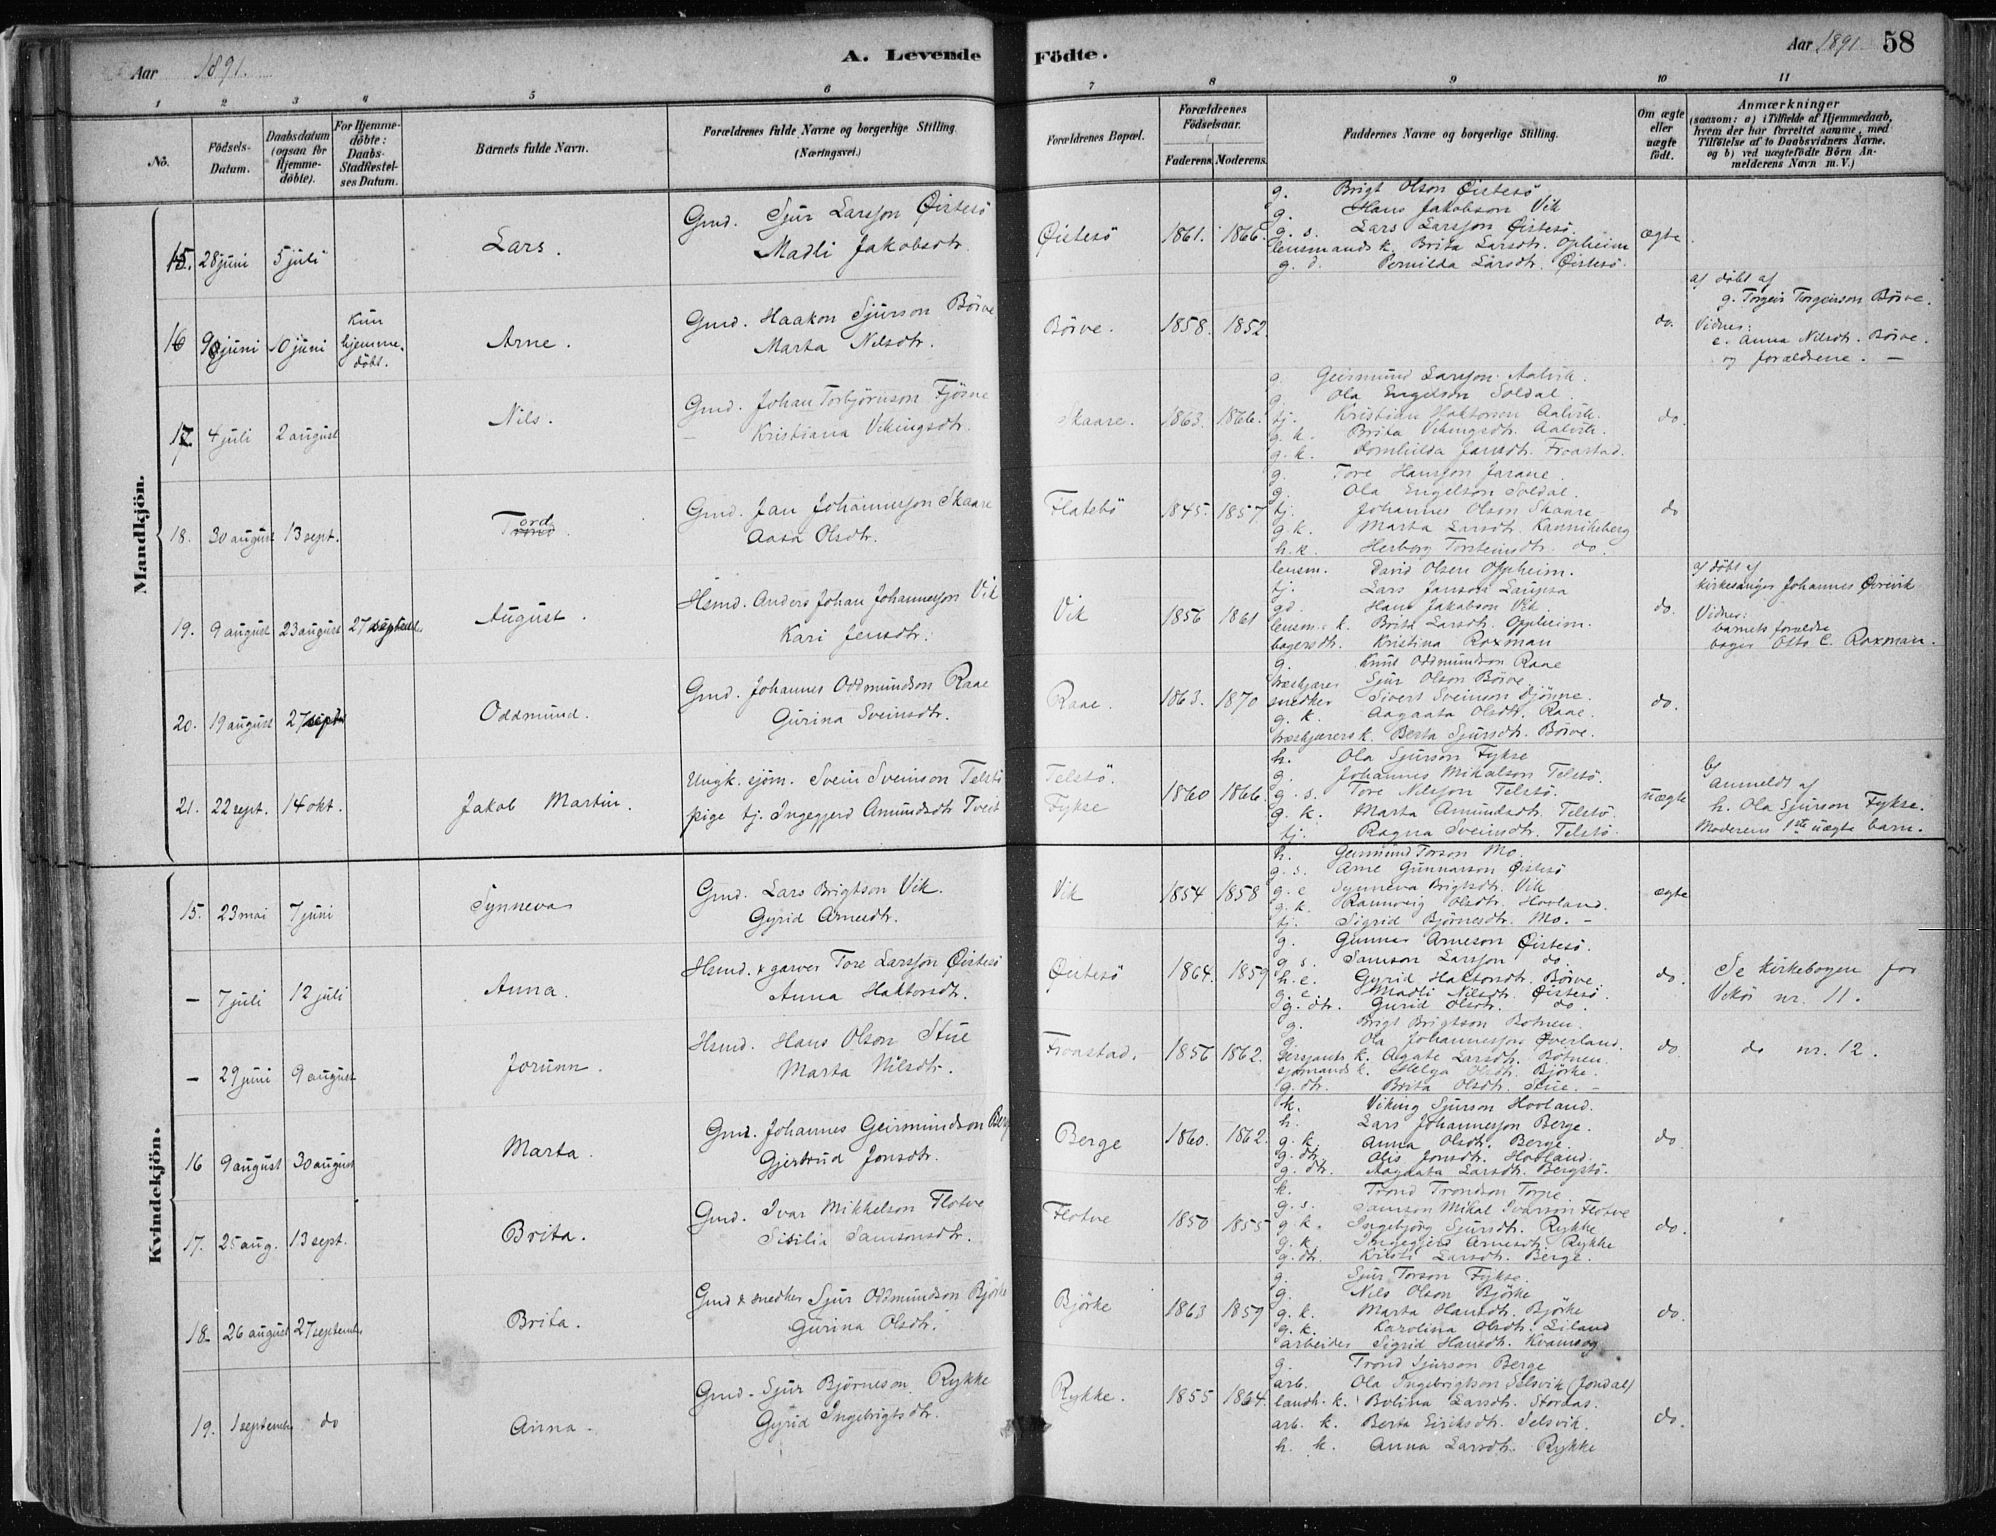 Aar 1891. A. Levende Födte. Aar 1891. 58
1 2 3 4 5 6 7 8 9 10 11
No. Födsels-Datum. Daabsdatum (ogsaa for Hjemme-döbte). For Hjemme-döbte: Daabs-Stadfæstel-ses Datum. Barnets fulde Navn. Forældrenes fulde Navne og borgerlige Stilling. (Næringsvei.) Forældrenes Bopæl. Forældrenes Födselsaar. Faderens. Moderens. Faddernes Navne og borgerlige Stilling. Om ægte eller uægte födt. Anmærkninger (saasom: a) i Tilfælde af Hjemmedaab, hvem der har forrettet samme, med Tilföielse af to Daabsvidners Navne, og b) ved uægtefödte Börn Anmelderens Navn m. V.)
Mandkjön.
15. 28 juni 5 juli Lars. Gmd. Sjur Larsson Øistesö
Madli Jakobsdtr. Øistesö 1861. 1866. ægte
g. Brigt Olson Øistesö
g. Hans Jakobson Vik
g. s. Lars Larsson Øistesö.
lensmands k. Brita Larsdtr. Opheim
g. d. Pernilda Larsdtr. Øistesö.
16 9 juni 10 juni Kun hjemme-döbt. Arne. Gmd. Haakon Sjurson Börve
Marta Nilsdtr. Börve. 1858. 1852. do.
a) döbt af
g. Torgeir Torgeirson Börve.
Vidner:
e. Anna Nilsdt. Börve.
og forældrene. —
17. 4 juli 2 august Nils. Gmd. Johan Torbjörnson Fjösne
— Kristiana Vikingsdtr. Skaare. 1863. 1866. do.
g. Geirmund Larsson Aalvik.
g. Ola Engelson Soldal.
tj. Kristian Haktorson Aalvik.
g. k. Brita Vikingsdt. Aalvik.
g. k. Jansdt. Froastad.
18. 30 august 13 sept. Tord. Gmd. Jan Johannesson Skaare
Aasa Olsdtr. Flatebö 1845. 1857 do
g. Tore Hansson Jarane.
g. Ola Engelson Soldal.
tj. Johannes Olson Skaare
g. k. Marta Larsdt. Kannikeberg
h. k. Herborg Torsteinsdtr. do.
19. 9 august 23 august 27 september August. Hsmd. Anders Johan Johannesson Vik
Kari Jensdtr. Vik 1856 1861 do.
lensm. David Olsen Oppheim.
tj. Lars Janson Laupsa
gd. Hans Jakobson Vik
lensm. k. Brita Larsdt. Oppheim.
bagersdtr. Kristina Roxman
a) döbt af
kirkesanger Johannes Övrevik
Vidner:
barnets forældre
bager Otto C. Roxman.
20. 19 august 27 septbr Oddmund. Gmd. Johannes Oddmundson Raae
Gurina Sveinsdtr. Raae. 1863. 1870 do.
g. Knut Oddmundson Raae
Sjur Olson Börve.
snedker Sivert Sveinson Djönne.
g. k. Aagaata Olsdt. Raae.
k. Berta Sjursdt. Börve.
21. 22 sept. 14 okt. Jakob Martin. Ungk. sjöm. Svein Sveinson Telstö
pige tj. Ingegjerd Amundsdtr Tveit Telstö. Fykse 1860 1866. uægte
h. Ola Sjurson Fykse
g. Johannes Mikalson Telstö.
g. s. Tore Nilsson Telstö.
g. k. Marta Amundsdt. Telstö.
tj. Ragna Sveinsdt. Telstö.
b)
Anmeldt af
h. Ola Sjurson Fykse.
Moderens 1ste uægte barn.
Kvindekjön.
15. 23 mai 7 juni Synneva Gmd. Lars Brigtson Vik.
Gyrid Arnesdtr. Vik 1854 1858 ægte
h. Geirmund Torson Mo.
g. s. Arne Gunnarson Øistesö
g. e Synneva Brigtsdt. Vik
g. k. Rannveig Olsdt. Hovland.
tj. Sigrid Björnesdtr. Mo. —
— 7 juli 12 juli Anna. Hsmd. & garver Tore Larsson Øistesö
Anna Haktorsdtr. Øistesö 1864. 1859 do.
g. Gunnar Arneson Øistesö.
g. s. Samson Larsson do.
h. e. Gyrid Haktorsdt. Börve.
g. e. Madli Nilsdt. Øistesö.
g. dtr. Gurid Olsdt. do.
Se kirkebogen for
Vikör nr. 11.
— 29 juni 9 august Jorunn. Hsmd. Hans Olson Stue
Marta Nilsdtr. Froastad. 1856 1862. do.
g. Brigt Brigtson Botnen.
g. Ola Johannesson Øverland.
sersjants k. Agate Larsdt. Botnen.
sjömands k. Helga Olsdt. Björke.
g. dtr. Brita Olsdt. Stue. —
do nr. 12.
16 9 august 30 august Marta. Gmd. Johannes Geirmundson Berge
Gjertrud Jonsdtr. Berge 1860. 1862. do.
k. Viking Sjurson Hovland.
h. Lars Johannesson Berge.
g. k. Anna Olsdt. Berge.
g. dtr. Olis Jonsdt. Hovland.
g. dtr. Aagaata Larsdt. Bergstö.
17. 25 aug. 13 sept. Brita. Gmd. Ivar Mikkelson Flotve
Sisilia Samsonsdtr. Flotve 1850 1855 do.
k. Trond Trondson Torpe.
g. s. Samson Mikal Ivarson Flotve
g. k. Ingebjörg Sjursdt. Rykke
g. k. Ingegjerd Arnesdt. Rykke
g. dtr. Kristi Larsdt. Berge.
18. 26 august 27 septembr Brita. Gmd & snedker Sjur Oddmundson Björke
Gurina Olsdt. Björke 1863 1859 do.
g. Sjur Torson Fykse.
g. Nils Olson Björke
g. k. Marta Hansdt. Björke
g. k. Karolina Olsdt. Eiland
arbeider Sigrid Hansdt. Kvamsög
19. 1 septembr do Anna. Gmd. Sjur Björneson Rykke
Gyrid Ingebrigtsdtr. Rykke. 1855 1864. do.
g. Trond Sjurson Berge
arb. Ola Ingebrigtson Selsvik (Jondal)
landh. k. Bolina Larsdt. Stordas.
arb. k. Berta Eiriksdt. Selsvik.
h. k. Anna Larsdt. Rykke